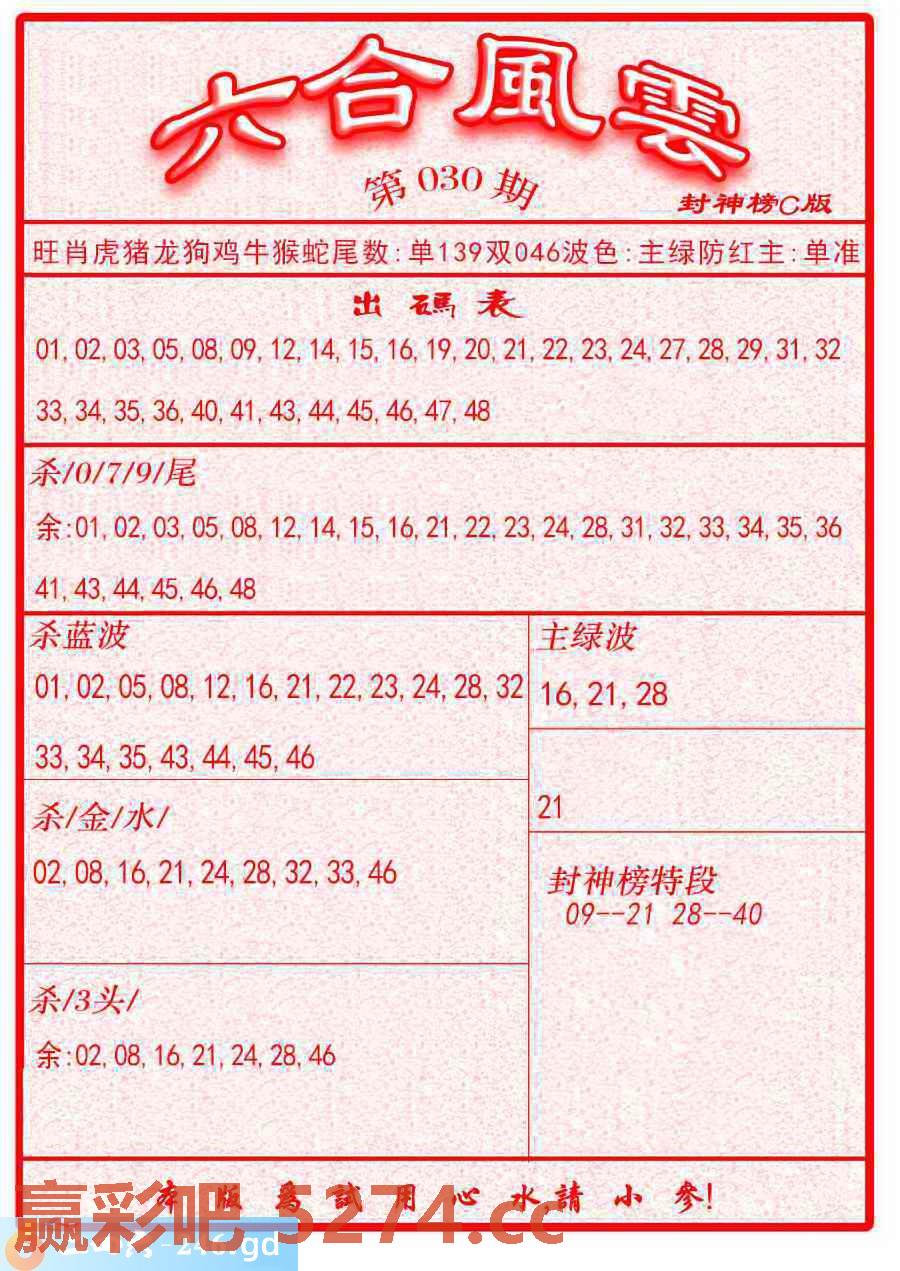 六合風雲
第 030 期
封神榜C版
旺肖虎猪龙狗鸡牛猴蛇尾数:单139双046波色:主绿防红主:单准
出碼表
01,02,03,05,08,09,12,14,15,16,19,20,21,22,23,24,27,28,29,31,32
33,34,35,36,40,41,43,44,45,46,47,48
杀/0/7/9/尾
余:01,02,03,05,08,12,14,15,16,21,22,23,24,28,31,32,33,34,35,36
41,43,44,45,46,48
杀蓝波
01,02,05,08,12,16,21,22,23,24,28,32
33,34,35,43,44,45,46
主绿波
16,21,28
21
杀/金/水/
02,08,16,21,24,28,32,33,46
封神榜特段
09--21 28--40
杀/3头/
余:02,08,16,21,24,28,46
本版為試用心水請小參!
赢彩吧 5274.cc
-246.gd